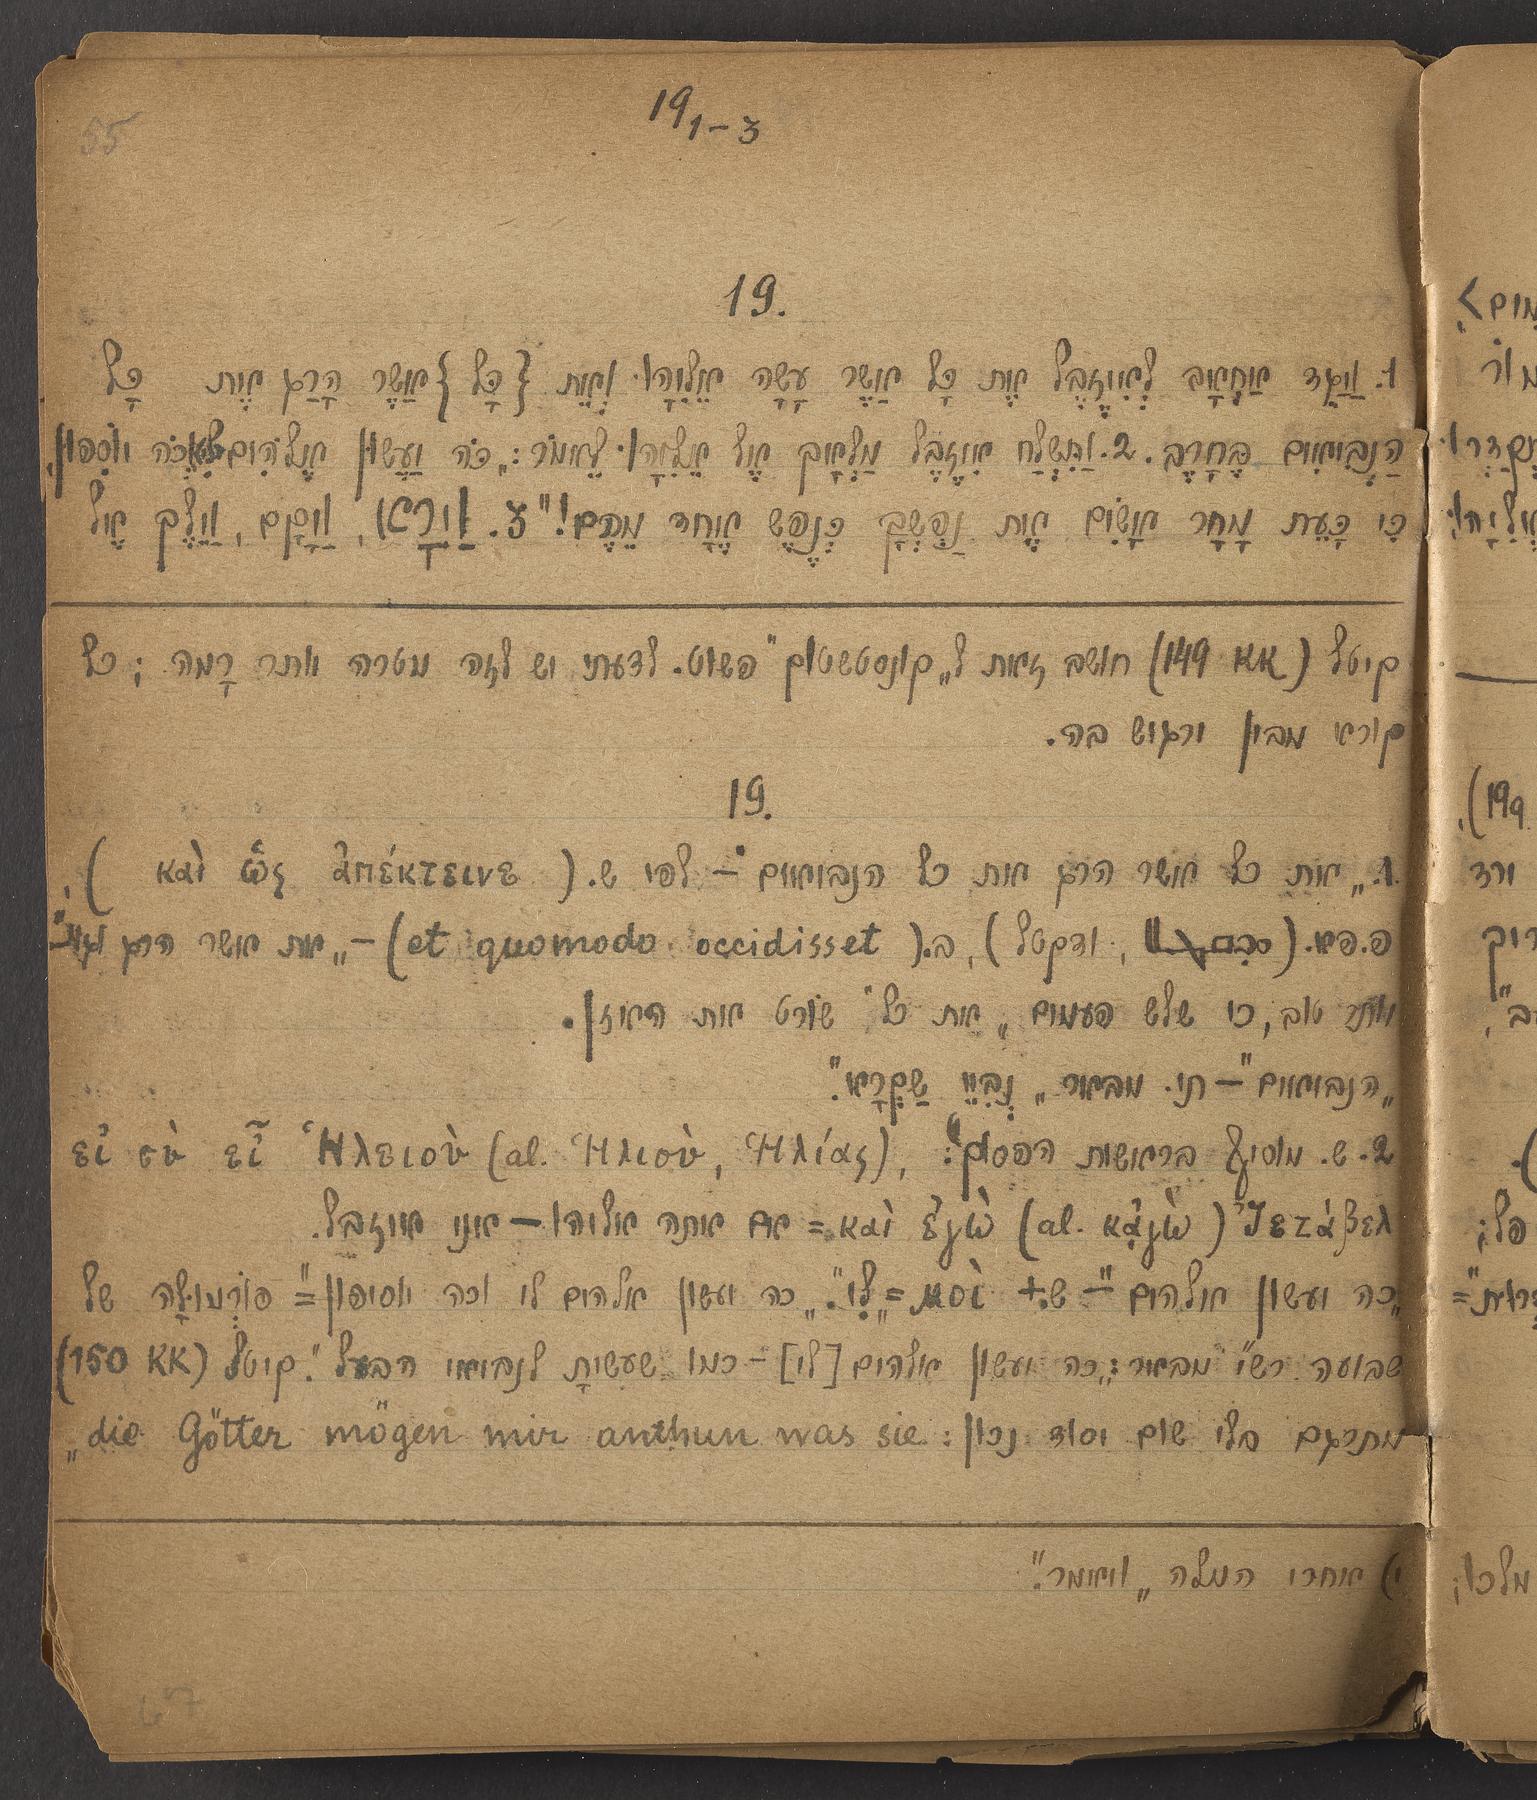 55
19₁₋₃
19.
1. וַיַּגֵּד אַחְאָב לְאִיזֶבֶל אֶת כָּל אֲשֶׁר עָשָׂה אֵלִיָּהוּ וְאֵת {כָּל} אֲשֶׁר הָרַג אֶת כָּל
הַנְּבִיאִים בֶּחָרֶב. 2. וַתִּשְׁלַח אִיזֶבֶל מַלְאָךְ אֶל אֵלִיָּהוּ לֵאמֹר: „כֹּה יַעֲשׂוּן אֱלֹהִים וְכֹה יוֹסִפוּן,
כִּי כָעֵת מָחָר אָשִׂים אֶת נַפְשְׁךָ כְּנֶפֶשׁ אֶחָד מֵהֶם!" 3. וַיִּרָא, וַיָּקָם, וַיֵּלֶךְ אֶל
קיטל (149 KK) חושב זאת ל„קונסטשטוק" פשוט. לדעתי יש לזה מטרה יותר רָמה; כל
קורא מבין ורגיש בה.
19.
1. „את כל אשר הרג את כל הנביאים" – לפי ש. (καὶ ὡς ἀπέκτεινε),
פ.פש. ( , ודקטל), ב. (et quomodo occidisset) – „את אשר הרג וגו'"
יותר טוב, כי שלש פעמים „את כל" שורט את האוזן.
„הנביאים" – תי. מבאר „נְבִיֵּי שַׁקְרָא".
2. ש. מוסיף בראשית הפסוק: εἰ σὺ εἶ Ἠλειοὺ (al. Ἠλιοὺ, Ἠλίας),
καὶ ἐγὼ (al. κἀγὼ) Ἰεζάβελ = אם אתה אליהו – אני איזבל.
„כה יעשון אלהים" – ש. + μοὶ = „לִי". „כה יעשון אלהים לי וכה יוסיפון" = פוֹרְמוּלָה של
שבועה. רש"י מבאר: „כה יעשון אלהים [לי] – כמו שעשיתָ לנביאי הבעל". קיטל (150 KK)
מתרגם בלי שום יסוד נכון: „die Götter mögen mir anthun was sie
י) אחרי המלה „ויאמר".
67